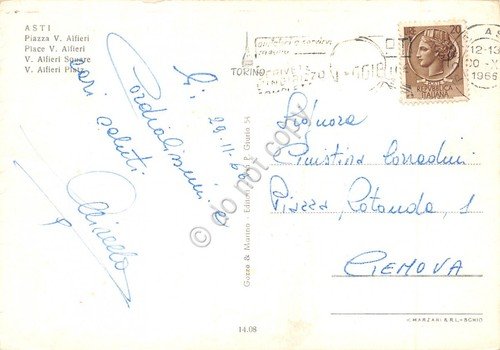 ASTI
Piazza V. Alfieri
Place V. Alfieri
V. Alfieri Square
V. Alfieri Platz
Li, 29-11-66
Cordialissimi e
cari saluti
TORINO
20
REPUBBLICA
ITALIANA
12-13
1966
Signora
Giustina Corradini
Piazza Rotonda, 1
GENOVA
Gozzo & Manino - Edizioni P. Giuria 54
do not copy
14.08
V. MARZARI - S.R.L. - SCHIO